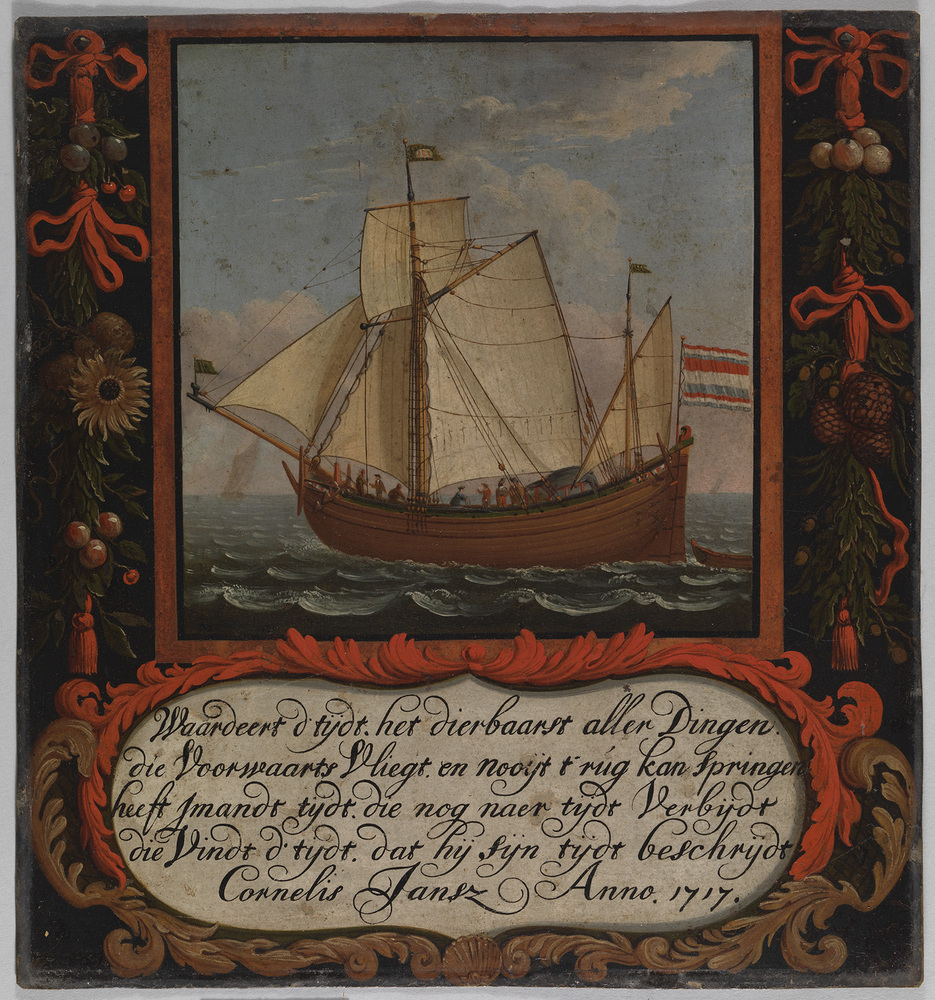 Waardeert d'tijdt. het dierbaarst aller Dingen.
die Voorwaarts Vliegt. en nooijt t'rúg kan springen
heeft jmandt tijdt. die nog naer tijdt Verbijdt
die Vindt d'tijdt. dat hij sijn tijdt beschrijdt.
Cornelis Jansz Anno. 1717.